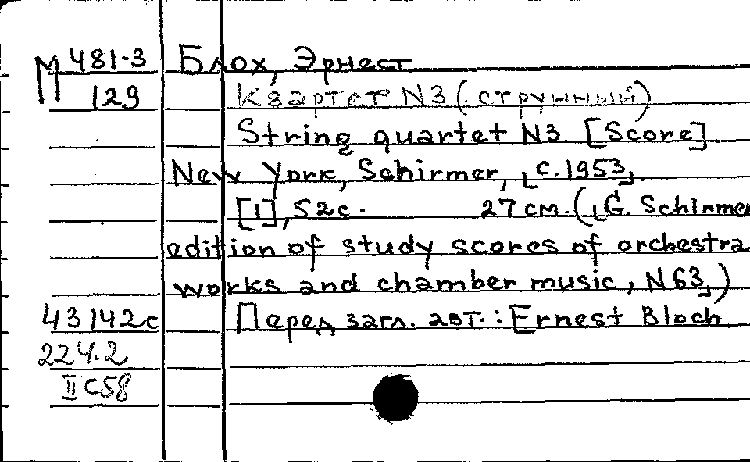 М 481-3 Блох, Эрнест
129 Квартет N3 (струнный)
String quartet N3 [Score]
New York, Schirmer, [c.1953].
[1], 52с. 27 см. ([G. Schirmer
edition of study scores of orchestra
works and chamber music, N 63])
43142c Перед загл. авт.: Ernest Bloch
224.2
II c58